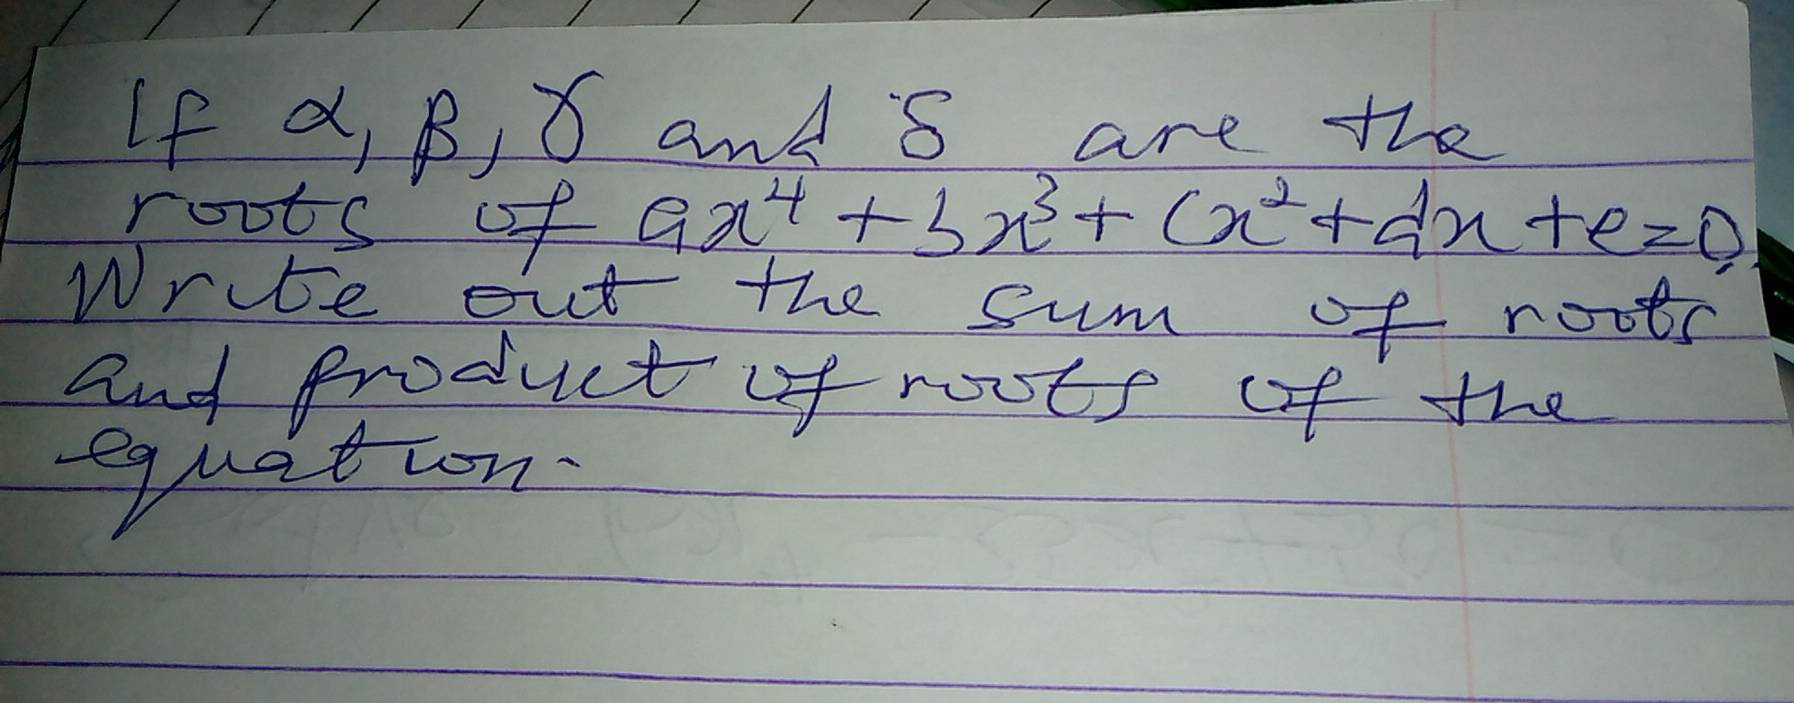 If α, β, γ and δ are the
roots of ax⁴ + bx³ + cx² + dx + e = 0.
Write out the sum of roots
and product of roots of the
equation.